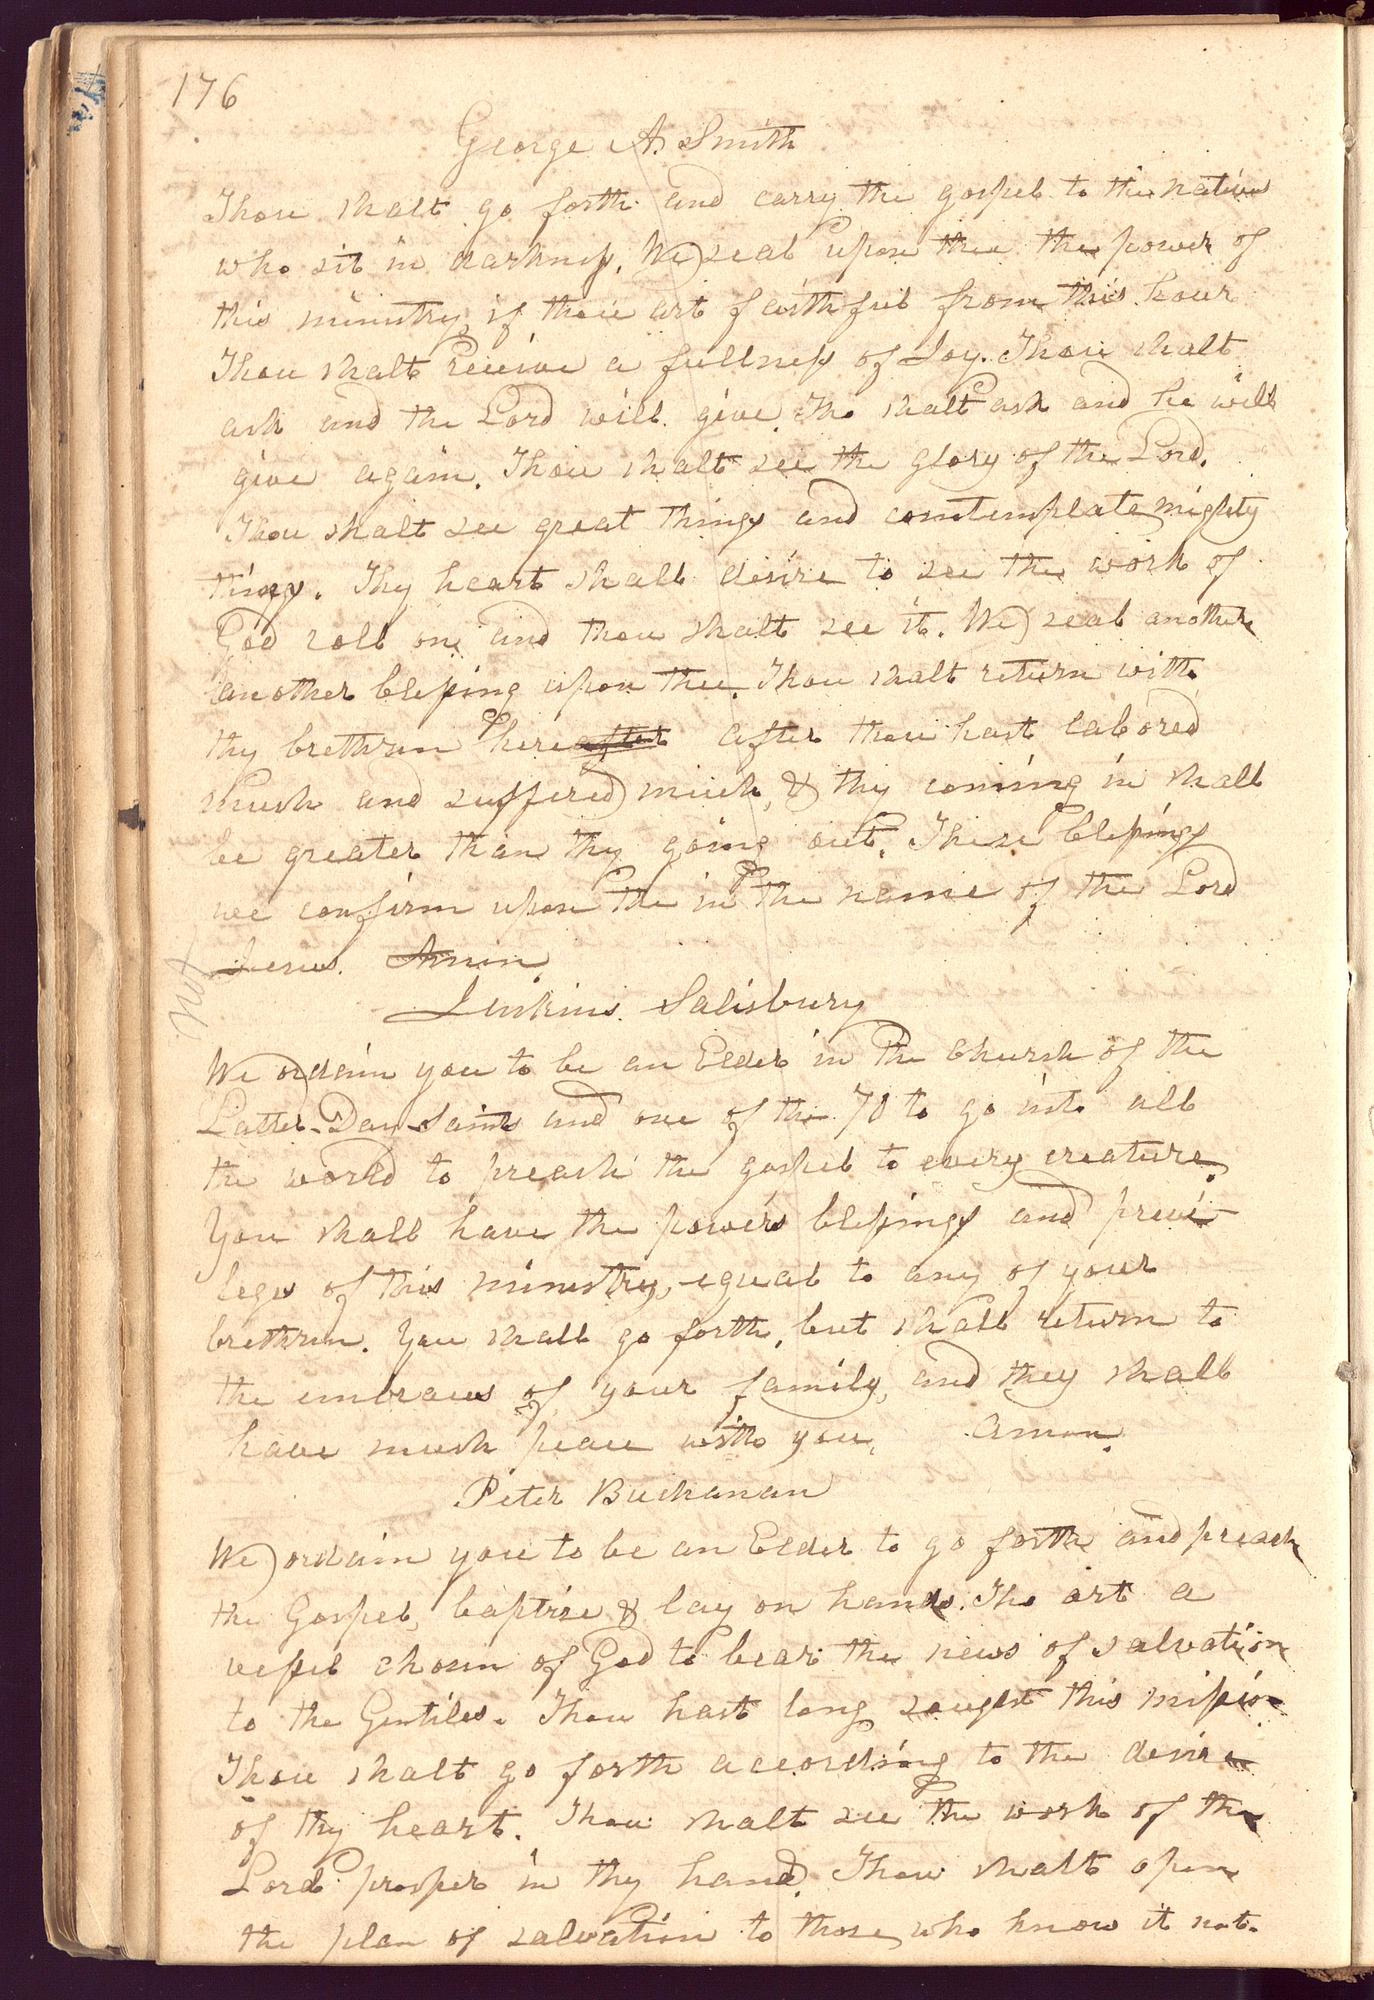 176
George A. Smith
Thou shalt go forth and carry the gospel to the nations
who sit in darkness. We seal upon thee the power of
this ministry, if thou art faithful from this hour
Thou shalt receive a fullness of Joy. Thou shalt
ask and the Lord will give, tho shalt ask and he will
give again. Thou shalt see the glory of the Lord.
Thou shalt see great things and comtemplate mighty
things. Thy heart shall desire to see the work of
God roll on, and thou shalt see it. We seal another
another blessing upon thee. Thou shalt return with
thy brethren hereafter after thou hast labored
much and suffered much, & thy coming in shall
be greater than thy going out. These blessings
we confirm upon the in the name of the Lord
Jesus. Amen.
not
Jenkins Salisbury
We ordain you to be an Elder in the church of the
Latter-Day-Saints and one of the 70 to go into all
the world to preach the gospel to every creature.
You shall have the powers blessings and privi-
leges of this ministry, equal to any of your
brethren. You shall go forth, but shall return to
the embraces of your family, and they shall
have much peace with you. Amen.
Peter Buchanan
We ordain you to be an Elder to go forth and preach
the Gospel, baptise & lay on hands. Tho art a
vessel chosen of God to bear the news of salvation
to the Gentiles. Thou hast long sought this mission
Thou shalt go forth according to the desire
of thy heart. Thou shalt see the work of the
Lord prosper in thy hand. Thou shalt open
the plan of salvation to those who know it not.